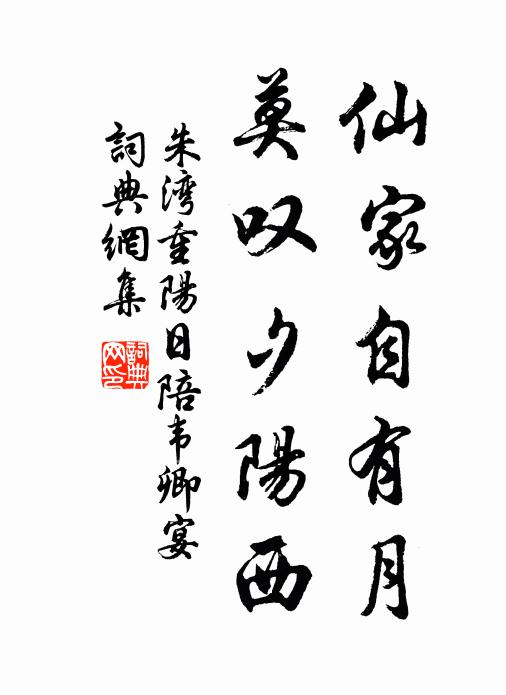 仙家自有月
莫叹夕陽西
朱湾重陽日陪韦卿宴
詞典網集
詞典
网印